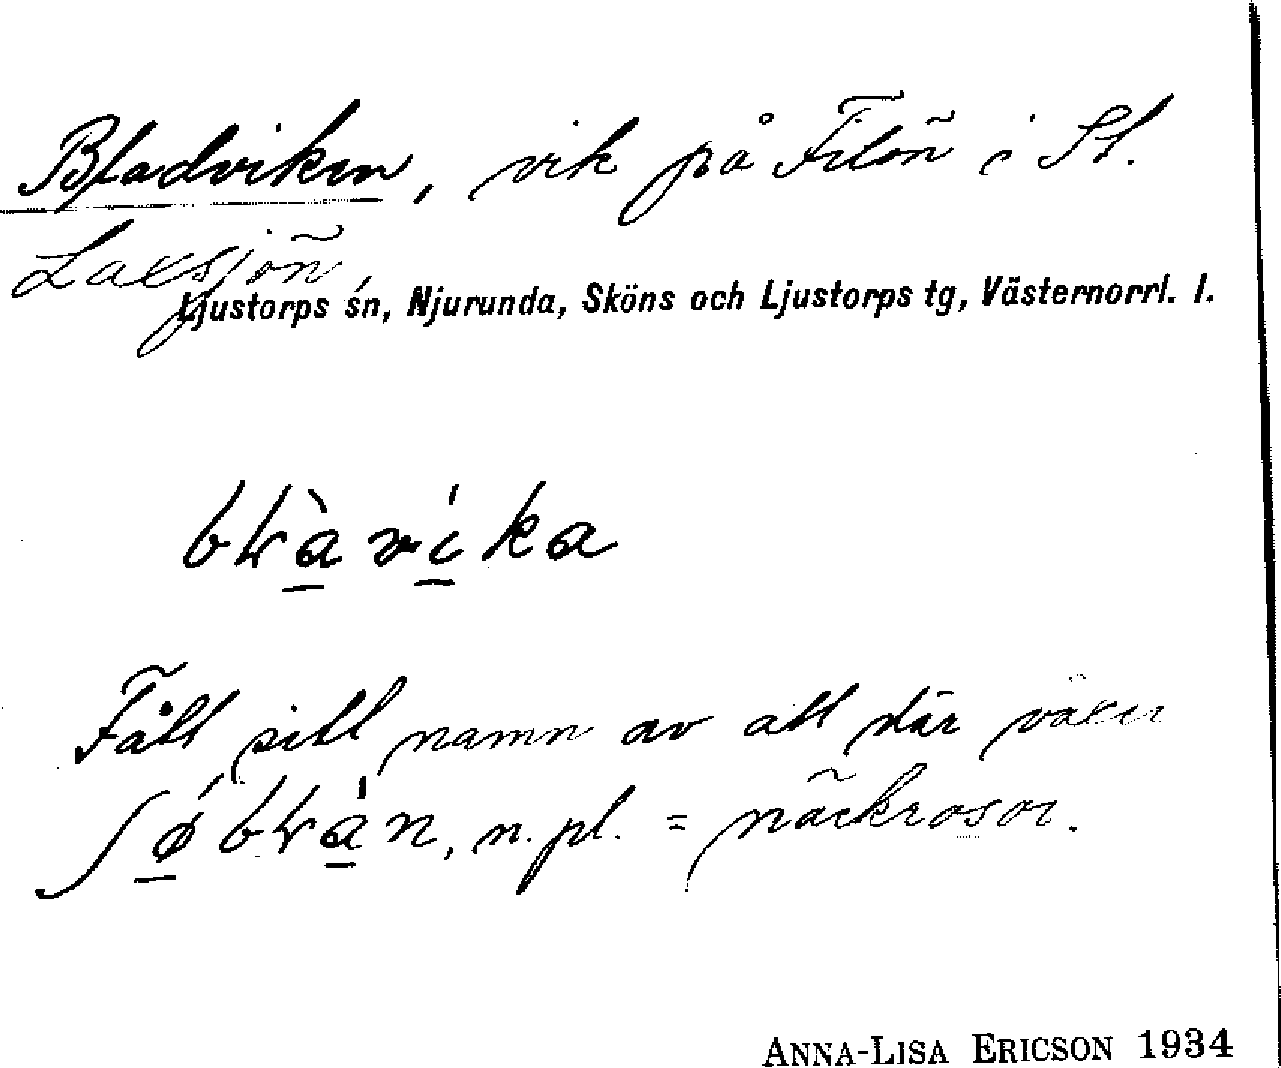 Bladviken, vik på Filön i St.
Laxsjön
Ljustorps sn, Njurunda, Sköns och Ljustorps tg, Västernorrl. l.
bɫà̲ví̲ka
Fått sitt namn av att där växer
ʃǿ̲bɫà̲n, n. pl. = näckrosor.
ANNA-LISA ERICSON 1934